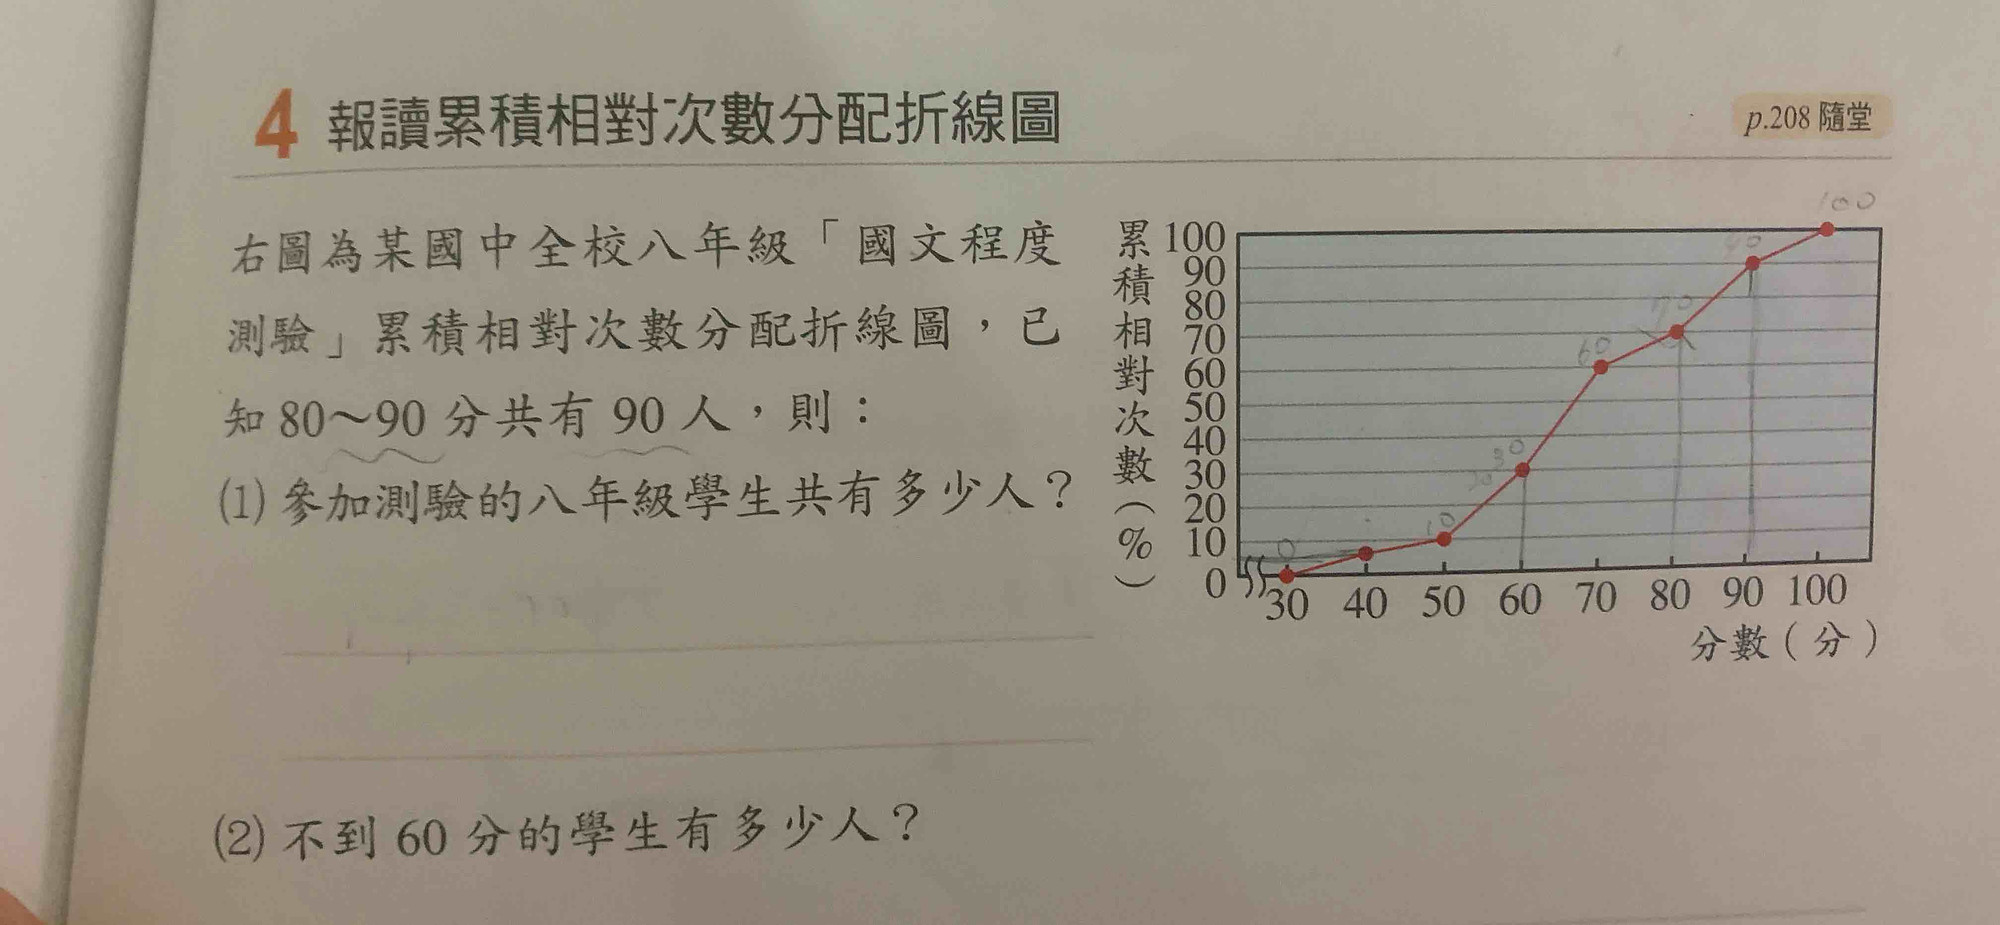 4 報讀累積相對次數分配折線圖
p.208 隨堂
右圖為某國中全校八年級「國文程度
測驗」累積相對次數分配折線圖，已
知 80～90 分共有 90 人，則：
(1) 參加測驗的八年級學生共有多少人？
(2) 不到 60 分的學生有多少人？
累積相對次數(%)
100
90
80
70
60
50
40
30
20
10
0
30 40 50 60 70 80 90 100
分數（分）
0
10
30
60
70
100